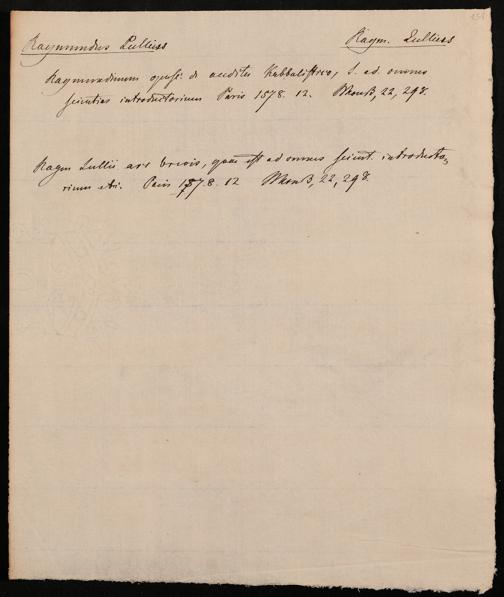 Raymundus Lullius Raym. Lullius
Raymundinum opusc. de auditu Kabbalistico, s. ad omnes
scientias introductorium Paris 1578. 12.
Raym Lullii ars brevis, quae est ad omnes scient. introducto,
rium etc. Paris 1578. 12